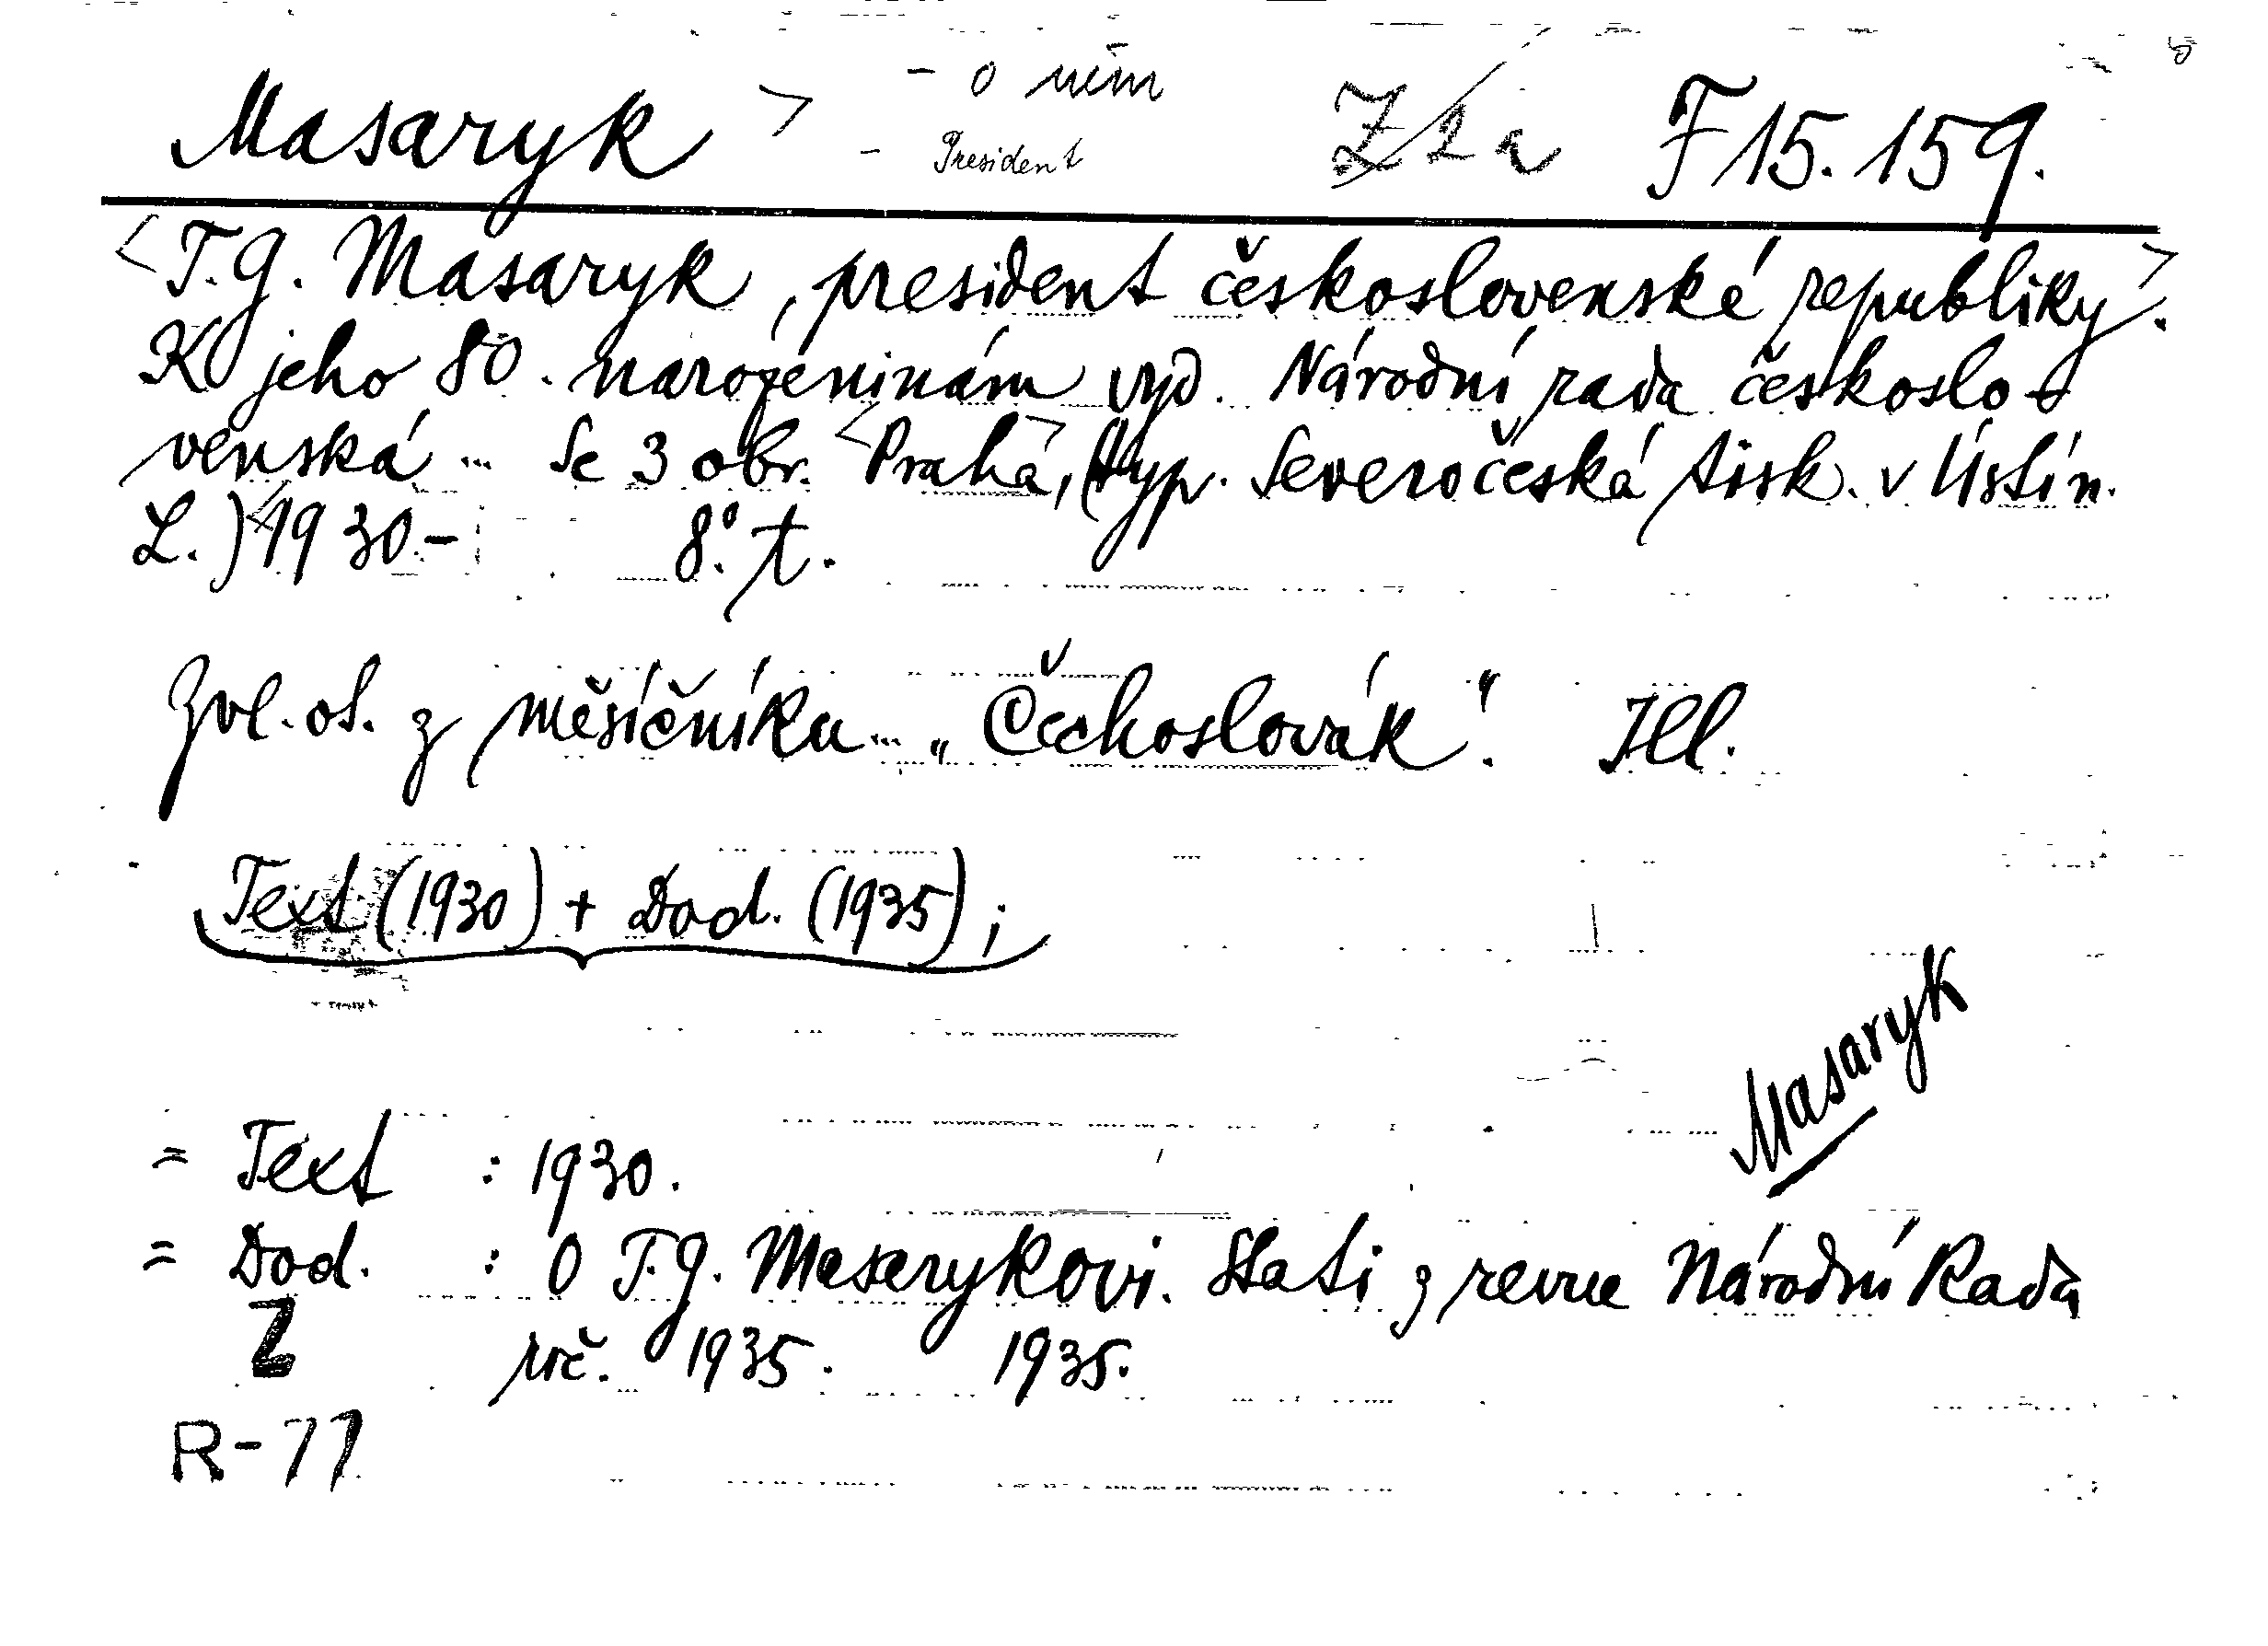 Masaryk > - o něm
- President
Z 2 a F 15.159.
<T.G. Masaryk, president československé republiky>.
K jeho 80. narozeninám vyd. Národní rada českoslo-
venská... Se 3 obr. <Praha>, (typ. Severočeská tisk. v Ústí n.
L.) <1930.- 8°. t.
Zvl. ot. z měsíčníku... „Čechoslovák". Ill.
Text (1930) + Dod. (1935);
Masaryk
= Text : 1930.
= Dod. : O T.G. Masarykovi. Stati z revue Národní Rada
Z roč. 1935. 1935.
R-77